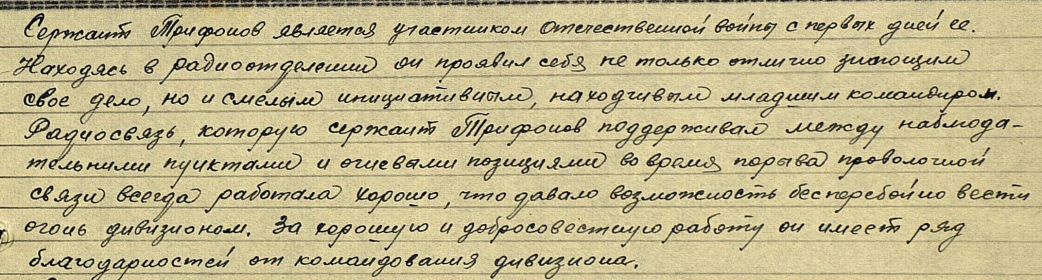 Сержант Трифонов является участником Отечественной войны с первых дней ее.
Находясь в радиоотделении он проявил себя не только отлично знающим
свое дело, но и смелым инициативным, находчивым младшим командиром.
Радиосвязь, которую сержант Трифонов поддерживал между наблюда-
тельными пунктами и огневыми позициями во время порыва проволочной
связи всегда работала хорошо, что давало возможность бесперебойно вести
огонь дивизионом. За хорошую и добросовестную работу он имеет ряд
благодарностей от командования дивизиона.